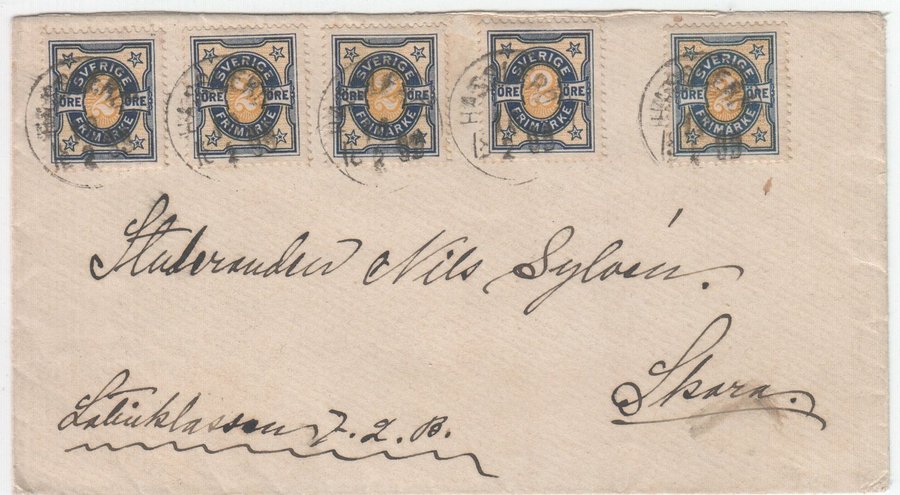 SVERIGE
2
ÖRE ÖRE
FRIMÄRKE
SVERIGE
2
ÖRE ÖRE
FRIMÄRKE
SVERIGE
2
ÖRE ÖRE
FRIMÄRKE
SVERIGE
2
ÖRE ÖRE
FRIMÄRKE
SVERIGE
2
ÖRE ÖRE
FRIMÄRKE
Studeranden Nils Sylvén.
Skara.
Latinklassen 7. 2. B.